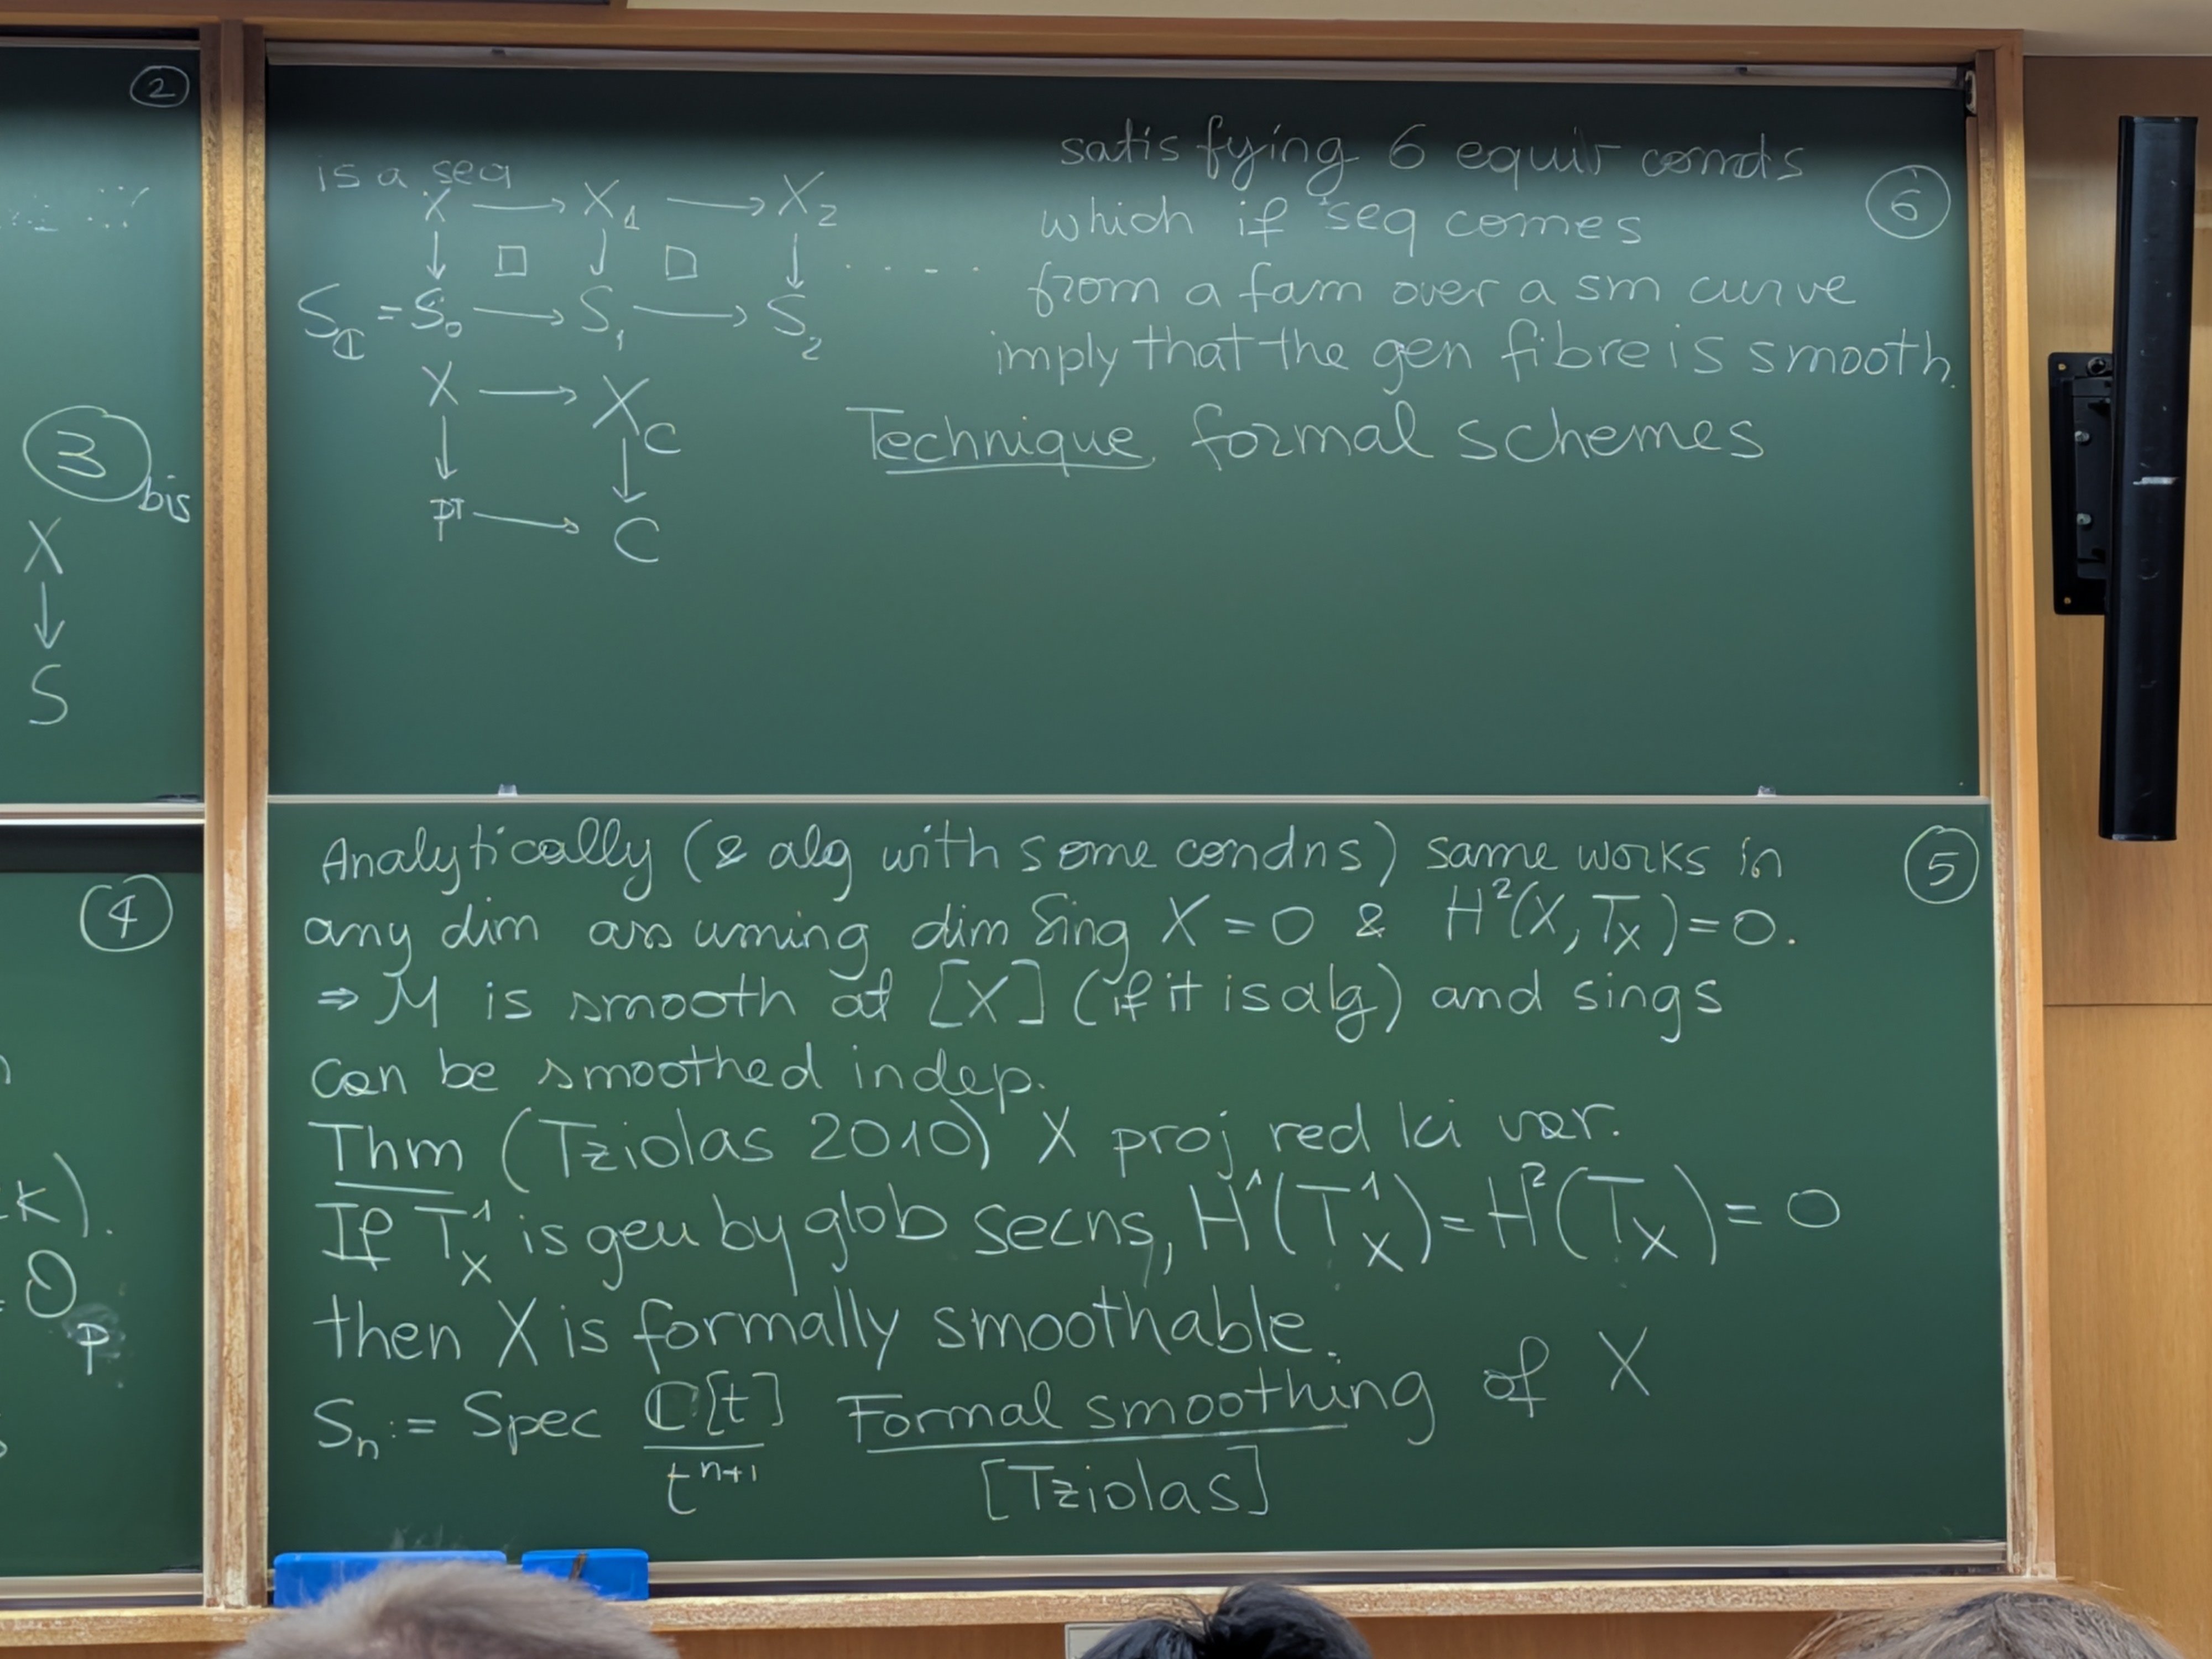 2
3 bis
X
↓
S
4
k).
O_p
6
is a seq
X → X_1 → X_2
↓ □ ↓ □ ↓ ....
S_ℂ = S_0 → S_1 → S_2
X → X_C
↓ ↓
pt → C
satisfying 6 equiv conds
which if seq comes
from a fam over a sm curve
imply that the gen fibre is smooth.
Technique formal schemes
5
Analytically (& alg with some condns) same works in
any dim assuming dim Sing X = 0 & H²(X, T_X) = 0.
⇒ M is smooth at [X] (if it is alg) and sings
can be smoothed indep.
Thm (Tziolas 2010) X proj red lci var.
If T^1_X is gen by glob secns, H^1(T^1_X) = H^2(T_X) = 0
then X is formally smoothable.
S_n := Spec ℂ[t] / t^{n+1} Formal smoothing of X
[Tziolas]